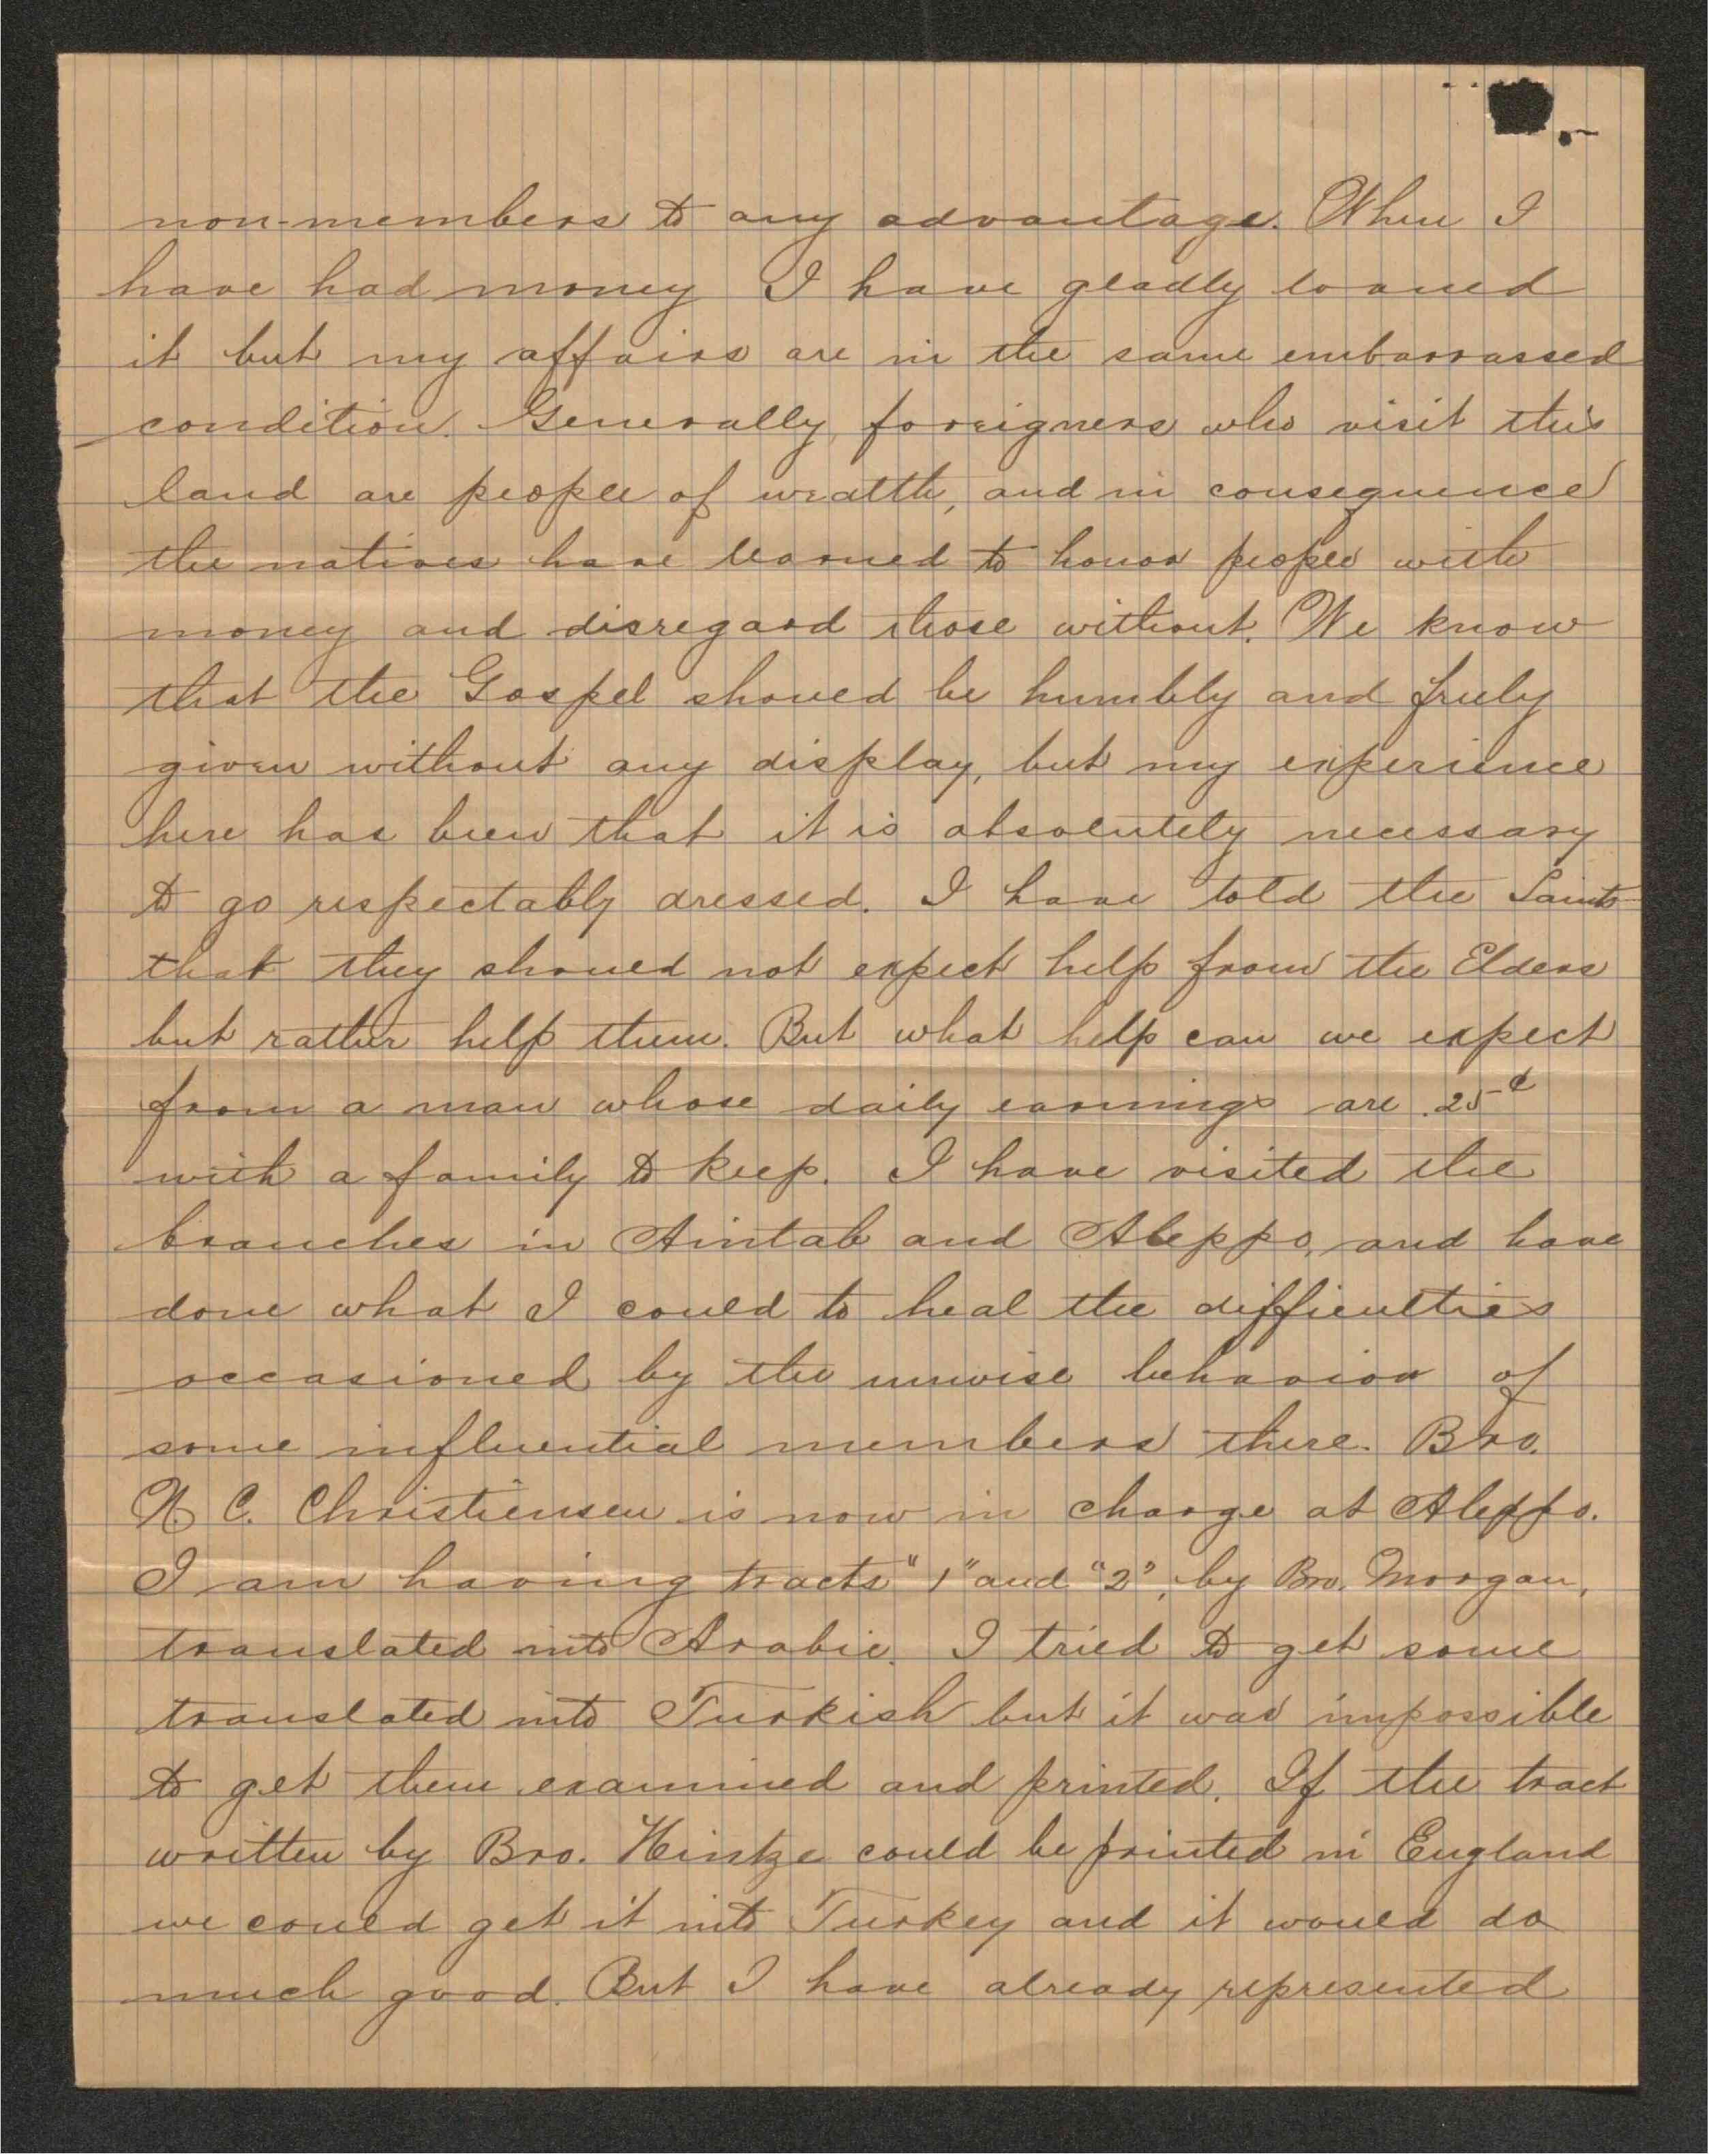 non-members to any advantage. When I
have had money I have gladly loaned
it but my affairs are in the same embarrassed
condition. Generally, foreigners who visit this
land are people of wealth, and in consequence
the natives have learned to honor people with
money and disregard those without. We know
that the Gospel should be humbly and freely
given without any display, but my experience
here has been that it is absolutely necessary
to go respectably dressed. I have told the Saints
that they should not expect help from the Elders
but rather help them. But what help can we expect
from a man whose daily earnings are .25¢
with a family to keep. I have visited the
branches in Aintab and Aleppo, and have
done what I could to heal the difficulties
occasioned by the unwise behavior of
some influential members there. Bro.
N. C. Christiensen is now in charge at Aleppo.
I am having tracts "1" and "2", by Bro. Morgan,
translated into Arabic. I tried to get some
translated into Turkish but it was impossible
to get them examined and printed. If the tract
written by Bro. Hintze could be printed in England
we could get it into Turkey and it would do
much good. But I have already represented